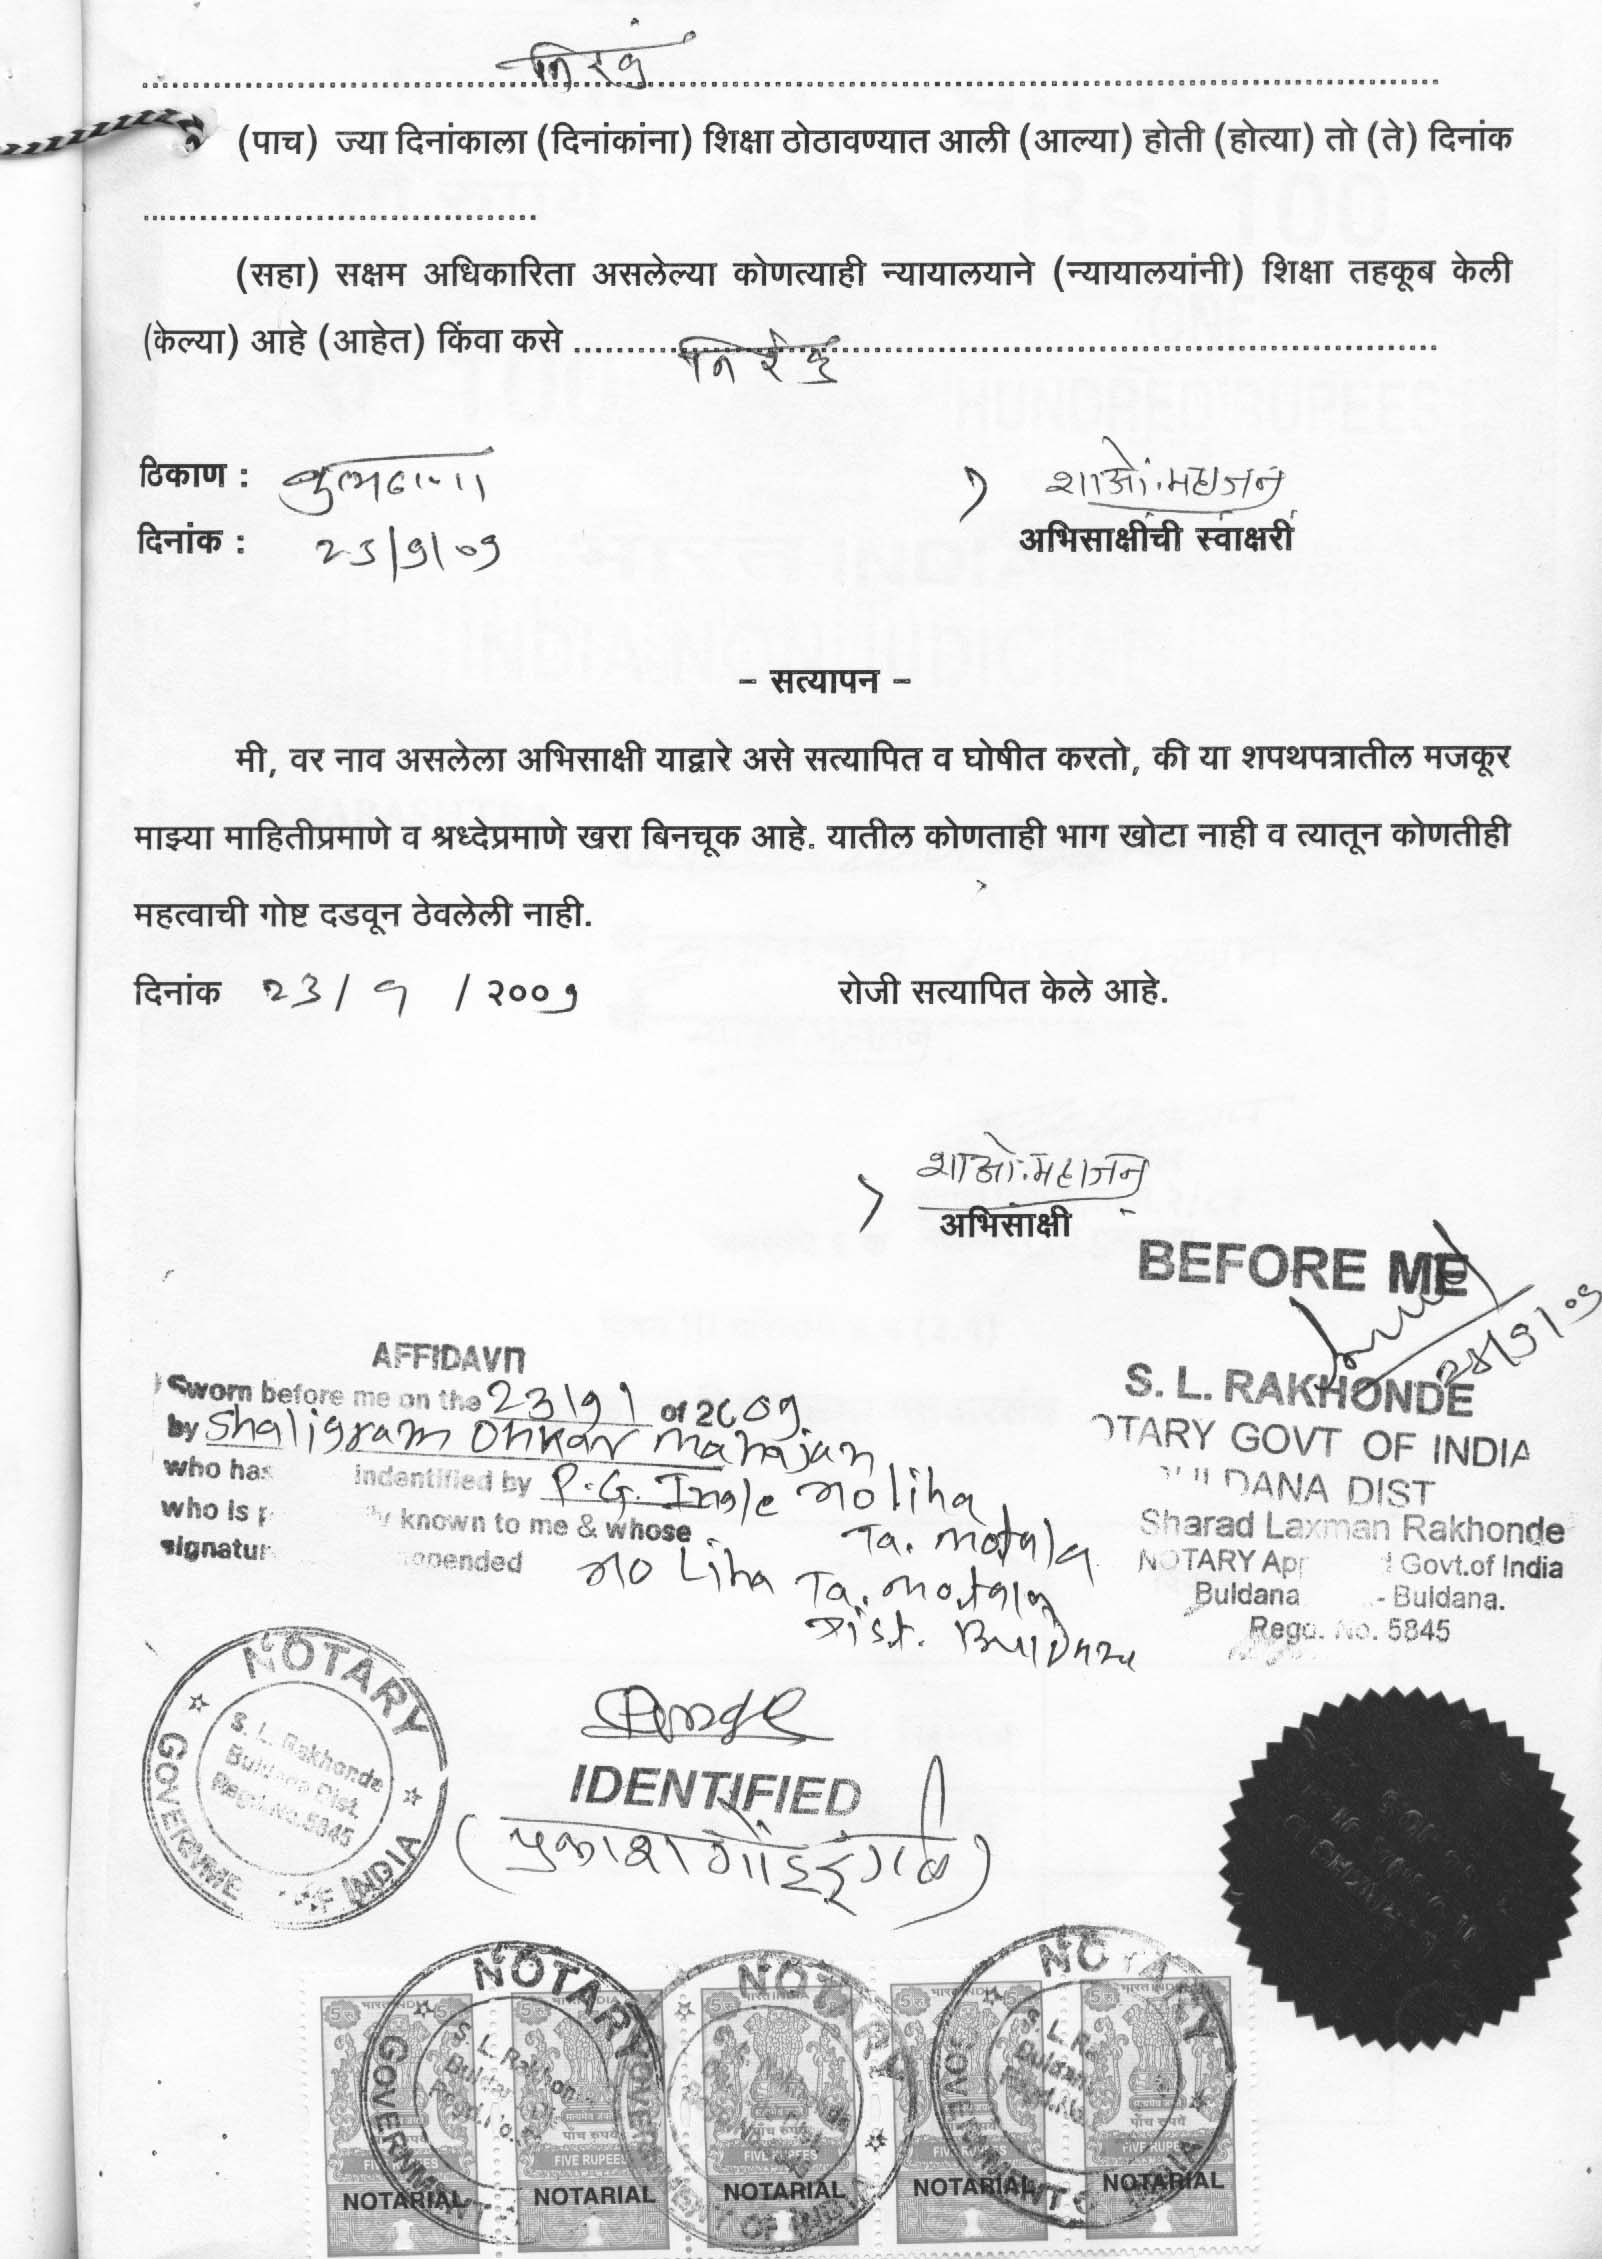 निरंक
(पाच) ज्या दिनांकाला (दिनांकांना) शिक्षा ठोठावण्यात आली (आल्या) होती (होत्या) तो (ते) दिनांक
(सहा) सक्षम अधिकारिता असलेल्या कोणत्याही न्यायालयाने (न्यायालयांनी) शिक्षा तहकूब केली
(केल्या) आहे (आहेत) किंवा कसे निरंक
ठिकाण : बुलढाणा
शा.ओं.महाजन
दिनांक : 23/9/09
अभिसाक्षींची स्वाक्षरी
– सत्यापन –
मी, वर नाव असलेला अभिसाक्षी याद्वारे असे सत्यापित व घोषीत करतो, की या शपथपत्रातील मजकूर
माझ्या माहितीप्रमाणे व श्रध्देप्रमाणे खरा बिनचूक आहे. यातील कोणताही भाग खोटा नाही व त्यातून कोणतीही
महत्वाची गोष्ट दडवून ठेवलेली नाही.
दिनांक 23/9/२००9 रोजी सत्यापित केले आहे.
शा.ओं.महाजन
अभिसाक्षी
BEFORE ME
AFFIDAVIT
Sworn before me on the 23/9/ of 2009
by Shaligram Onkar Mahajan
who has indentified by P.G. Ingle
who is known to me & whose
Ta. Motala
Ta. Motala
Dist. Buldana
S. L. RAKHONDE
NOTARY GOVT OF INDIA
BULDANA DIST
Sharad Laxman Rakhonde
NOTARY Govt.of India
Buldana - Buldana.
Regd. No. 5845
NOTARY
GOVERNME OF INDIA
S. L. Rakhonde
Buldana Dist.
Regd.No.5845
IDENTIFIED
NOTARY
NOTARY
NOTARY
भारत INDIA
पाँच रुपये
FIVE RUPEES
FIVE RUPEES
FIVE RUPEES
FIVE RUPEES
FIVE RUPEES
NOTARIAL
NOTARIAL
NOTARIAL
NOTARIAL
NOTARIAL